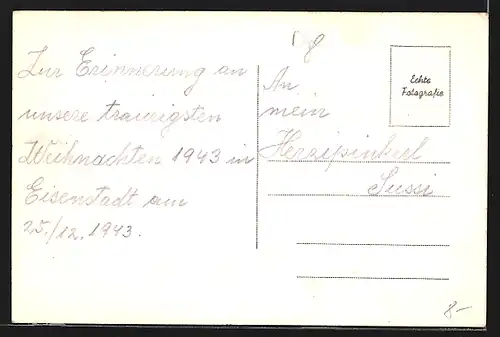 Zur Erinnerung an
unsere traurigsten
Weihnachten 1943 in
Eisenstadt am
25./12. 1943.
8
Echte
Fotografie
An
mein
Herzipinkerl
Sussi
8-